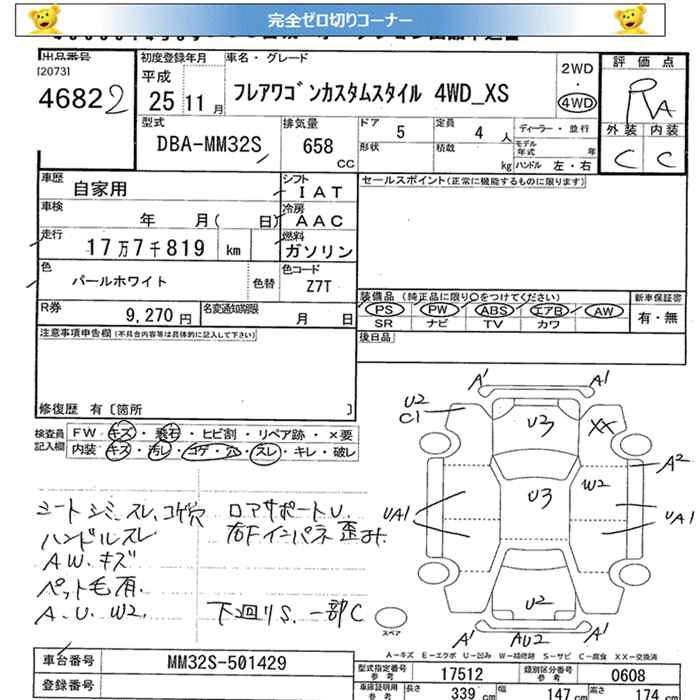 完全ゼロ切りコーナー
出品番号
[2073]
46822
初度登録年月
平成
25年11月
車名・グレード
フレアワゴンカスタムスタイル 4WD_XS
2WD
・
4WD
評価点
RA
外装 内装
C C
型式
DBA-MM32S
排気量
658
CC
ドア 5
形状
定員 4 人
積載 kg
ディーラー・並行
モデル年式 年
ハンドル 左・右
車歴
自家用
シフト
IAT
車検
年 月( 日)
冷房
AAC
走行
17万7千819 km
燃料
ガソリン
色
パールホワイト
色替
色コード
Z7T
R券
9,270 円
名変通知期限
月 日
セールスポイント(正常に機能するものに限ります)
装備品 (純正品に限り○をつけてください)
PS PW ABS エアB AW
SR ナビ TV カワ
新車保証書
有・無
後日品
注意事項申告欄(不具合内容等は具体的に記入して下さい)
修復歴 有〔箇所 〕
検査員
記入欄
FW キズ・飛石・ヒビ割・リペア跡・×要
内装 キズ・汚レ・コゲ・穴・スレ・キレ・破レ
シートシミ、スレ、コゲ穴
ハンドルスレ
AW.キズ
ペット毛有.
A.U.W2.
ロアサポートU.
右Fインパネ歪み.
下廻りS.一部C
A' A1
U2
C1
U3
XX
A2
W2
U3
UA1
UA1
U2
A' AU2 A'
スペア
A-キズ E-エクボ U-凹み W-補修跡 S-サビ C-腐食 XX-交換済
車台番号
MM32S-501429
登録番号
型式指定番号
参考
17512
類別区分番号
参考
0608
車庫証明用
参考
長さ 339 cm
幅 147 cm
高さ 174 cm